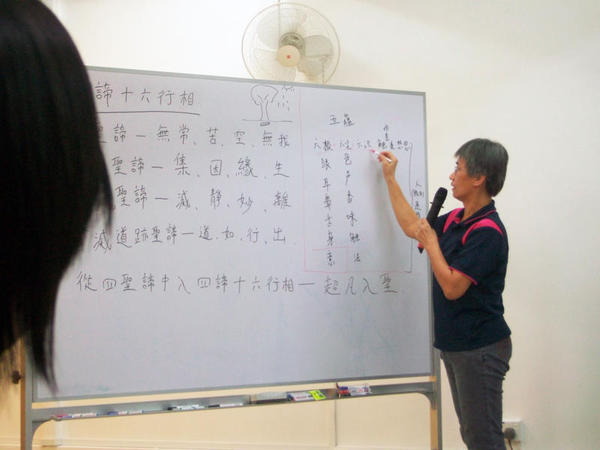 諦十六行相
聖諦一無常、苦、空、無我
聖諦一集、因、緣、生
聖諦一滅、靜、妙、離
滅道跡聖諦一道、如、行、出
從四聖諦中入四諦十六行相一超凡入聖
五蘊
六根 六塵 六識 觸
眼 色
耳 聲
鼻 香
舌 味
身 觸
意 法